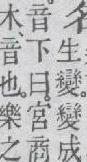 名
生變變成
音下曰宮商
木音也樂之